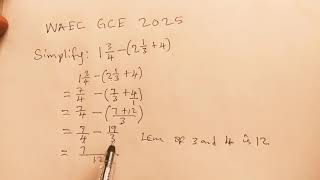 WAEC GCE 2025
Simplify: 1 3/4 - (2 1/3 + 4)
1 3/4 - (2 1/3 + 4)
= 7/4 - (7/3 + 4/1)
= 7/4 - (7+12/3)
= 7/4 - 19/3 Lcm of 3 and 4 is 12.
= 7/12